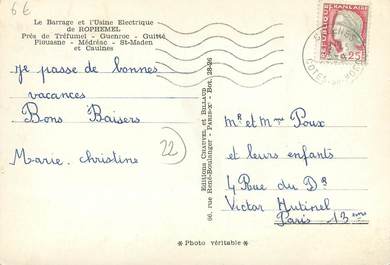 6€
Le Barrage et l'Usine Electrique
de ROPHEMEL
Près de Tréfumel - Guenroc - Guitté
Plouasne - Médréac - St-Maden
et Caulnes
je passe de bonnes
vacances
Bons Baisers
Marie. christine
22
Editions CHAUVEL et BILLAUD
66, rue René-Boulanger - PARIS-X - Bot. 28-26
REPUBLIQUE FRANÇAISE
0,25
COTES-DU-NORD
Mr et Mme Poux
et leurs enfants
4 Rue du Dr
Victor Hutinel
Paris 13ème
* Photo véritable *